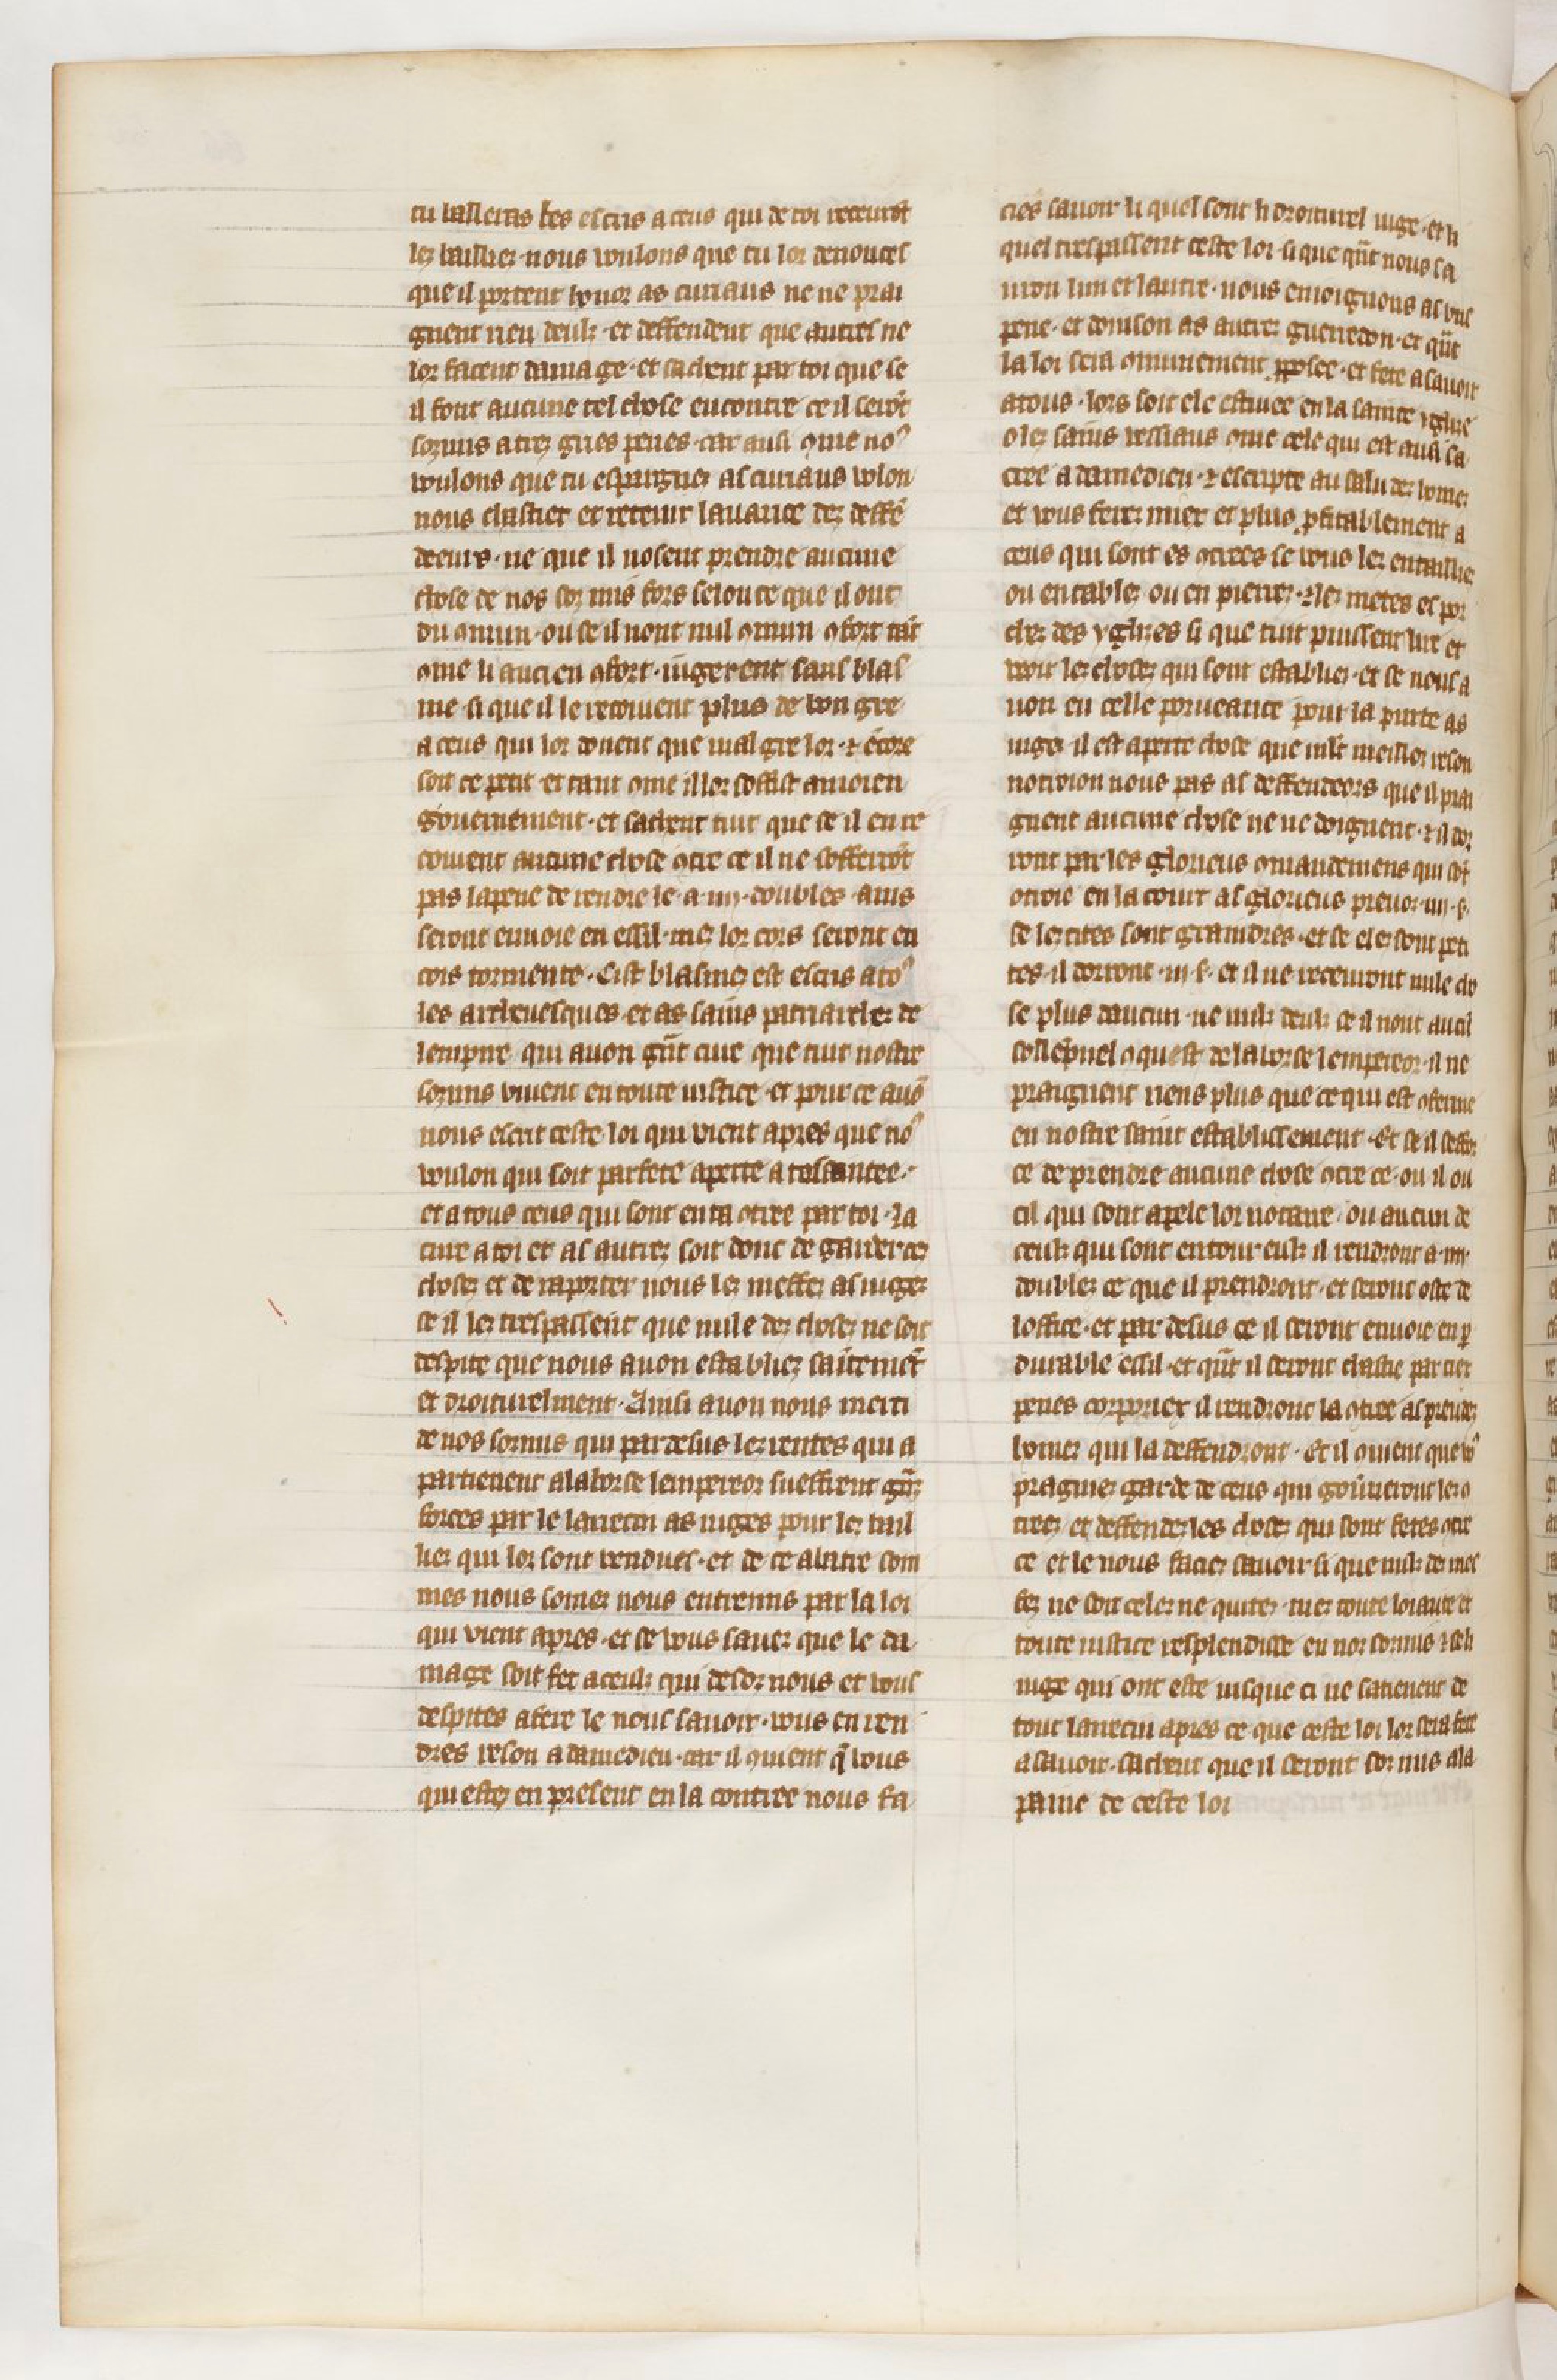 tu bailleras les escris a ceus qui de toi receurōt
lez baillies nous voulons que tu lor denonces
que il portent honor as curiaus ne ne prai
gnent rien deulz · et deffendent que autres ne
lor facent damage · et sachent par toi que se
il font aucune tel chose encontre ce il serōt
sozmis a trez gries penes · car ausi ꝯme noꝰ
voulons que tu espargnez as curiaus volon
nous chastier et retenir lauarice dez deffē
deeurs · ne que il nosent prendre aucune
chose de nos soz mis fors selonc ce que il ont
du ꝯmun · ou se il nont nul ꝯmun ꝯfort tāt
ꝯme li ancien ꝯfort · iugerent sans blas
me · si que il le recoiuent plus de bon gre
a ceus qui lor donent que mal gre lor · ⁊ ēcore
soit ce petit et tant ꝯme il lor soffist a moien
gouernement · et sachent tuit que se il en re
coiuent aucune chose ꝯtre ce il ne soffrerōt
pas la pene de rendre le · a · iiij · doubles · ains
seront enuoie en essil · mez lor cors seront en
cois tormente · Cist blasmez est escris a toꝰ
les archeuesques · et as sains patriarchez de
lempire qui auon grāt cure que tuit nostre
sozmis viuent en toute iustice · et pour ce auō
nous escrit ceste loi qui vient apres que noꝰ
voulon qui soit parfete aperte a to saintee ·
et a tous ceus qui sont en ta ꝯtree par toi · la
cure a toi et as autrez soit donc de garder cez
chosez et de raporter nous lez meffez as iugez
se il lez trespassent que nule dez chosez ne soit
despite que nous auon establiez saītemēt
et droiturelment · Ainsi auon nous merci
de nos sozmis qui par desus lez rentes qui a
partienent a la borse lempereor sueffrent grāz
forces par le larrecin as iuges pour lez bail
liez qui lor sont vendues · et de ce abatre som
mes nous somez nous entremis par la loi
qui vient apres · et se vous sauez que le da
mage soit fet a ceulz qui desoz nous et vous
despites a fere le nous sauoir · vous en ren
dres reson a damedieu · car il ꝯuient q̄ vous
qui estez en present en la contree nous fa
cies sauoir li quel sont li droiturel iuge · et li
quel trespassent ceste loi · si que qūt nous sa
uron lun et lautre · nous enioignons as uns
pene · et donison as autrez guerredon · et qūt
la loi sera ꝯmunement ꝓposee · et fete a sauoir
a tous · lors soit ele estiuee en la sainte yglise
o lez sains vessiaus ꝯme cele qui est ausi sa
cree a damedieu · ⁊ escripte au salu dez homez
et vous ferez miex et plus ꝓfitablement a
ceus qui sont es ꝯtrees se vous lez entailliez
ou en tablez ou en pierrez · ⁊ lez metes es por
chez des yglises si que tuit puissent lire et
veoir lez chosez qui sont establiez · et se nous a
uon eu celle porueance pour la purte as
iugez il est aperte chose que mlt meillor reson
notroion nous pas as deffendeors que il prai
gnent aucune chose ne ne doignent · ⁊ il dor
ront par les glorieus ꝯmandemens qui sōt
otroie en la court as glorieus preuoz · iiij · s ·
se lez cites sont graindres · et se elez sont peti
tes · il dorront · iij · s · et il ne receuront nule cho
se plus daucun · ne nulz deulz se il nont aucū
sollempnel ꝯquest de la borse lempereor · il ne
praignent riens plus que ce qui est ꝯferme
en nostre saint establissement · Et se il seffor
ce de prendre aucune chose ꝯtre ce · ou il ou
cil qui sont apele lor notaire · ou aucun de
ceulz qui sont entour eulz il rendront a · iiij ·
doublez ce que il prendront · et seront oste de
loffice · et par desus ce il seront enuoie en ꝑ
durable essil · et qūt il seront chastie par tiex
penes corporiex il rendront la ꝯtree as preudez
homez qui la deffendront · Et il ꝯuient que vꝰ
pragniez garde de ceus qui gouuerront lez ꝯ
trees et deffendez les chosez qui sont fetes ꝯtre
ce et le nous faciez sauoir si que nulz dez mes
fez ne soit celez ne quitez · mez toute loiaute et
toute iustice resplendisse en noz sozmis · ⁊ se li
iuge qui ont este iusque ci ne satienent de
tout larrecin apres ce que ceste loi lor sera fete
a sauoir · sachent que il seront soz mis a la
paine de ceste loi